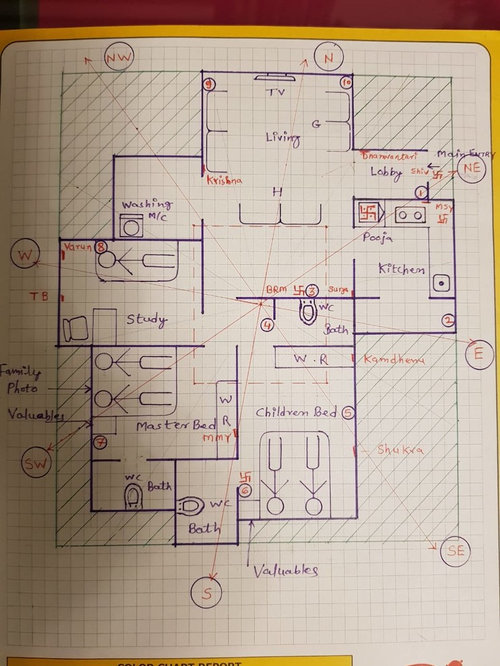 NW
N
9
10
TV
G
Living
Dhanvantari
Main ENTRY
Lobby
Shiv
NE
Krishna
1
H
MSY
Washing
M/C
Pooja
W
Varun
8
Kitchen
TB
BRM
3
Surya
WC
Study
4
Bath
2
E
W.R
Kamdhenu
Family
Photo
W
R
Valuables
Master Bed
Children Bed
5
7
MMY
SW
Shukra
6
WC
Bath
WC
Bath
SE
Valuables
S
COLOR CHART REPORT